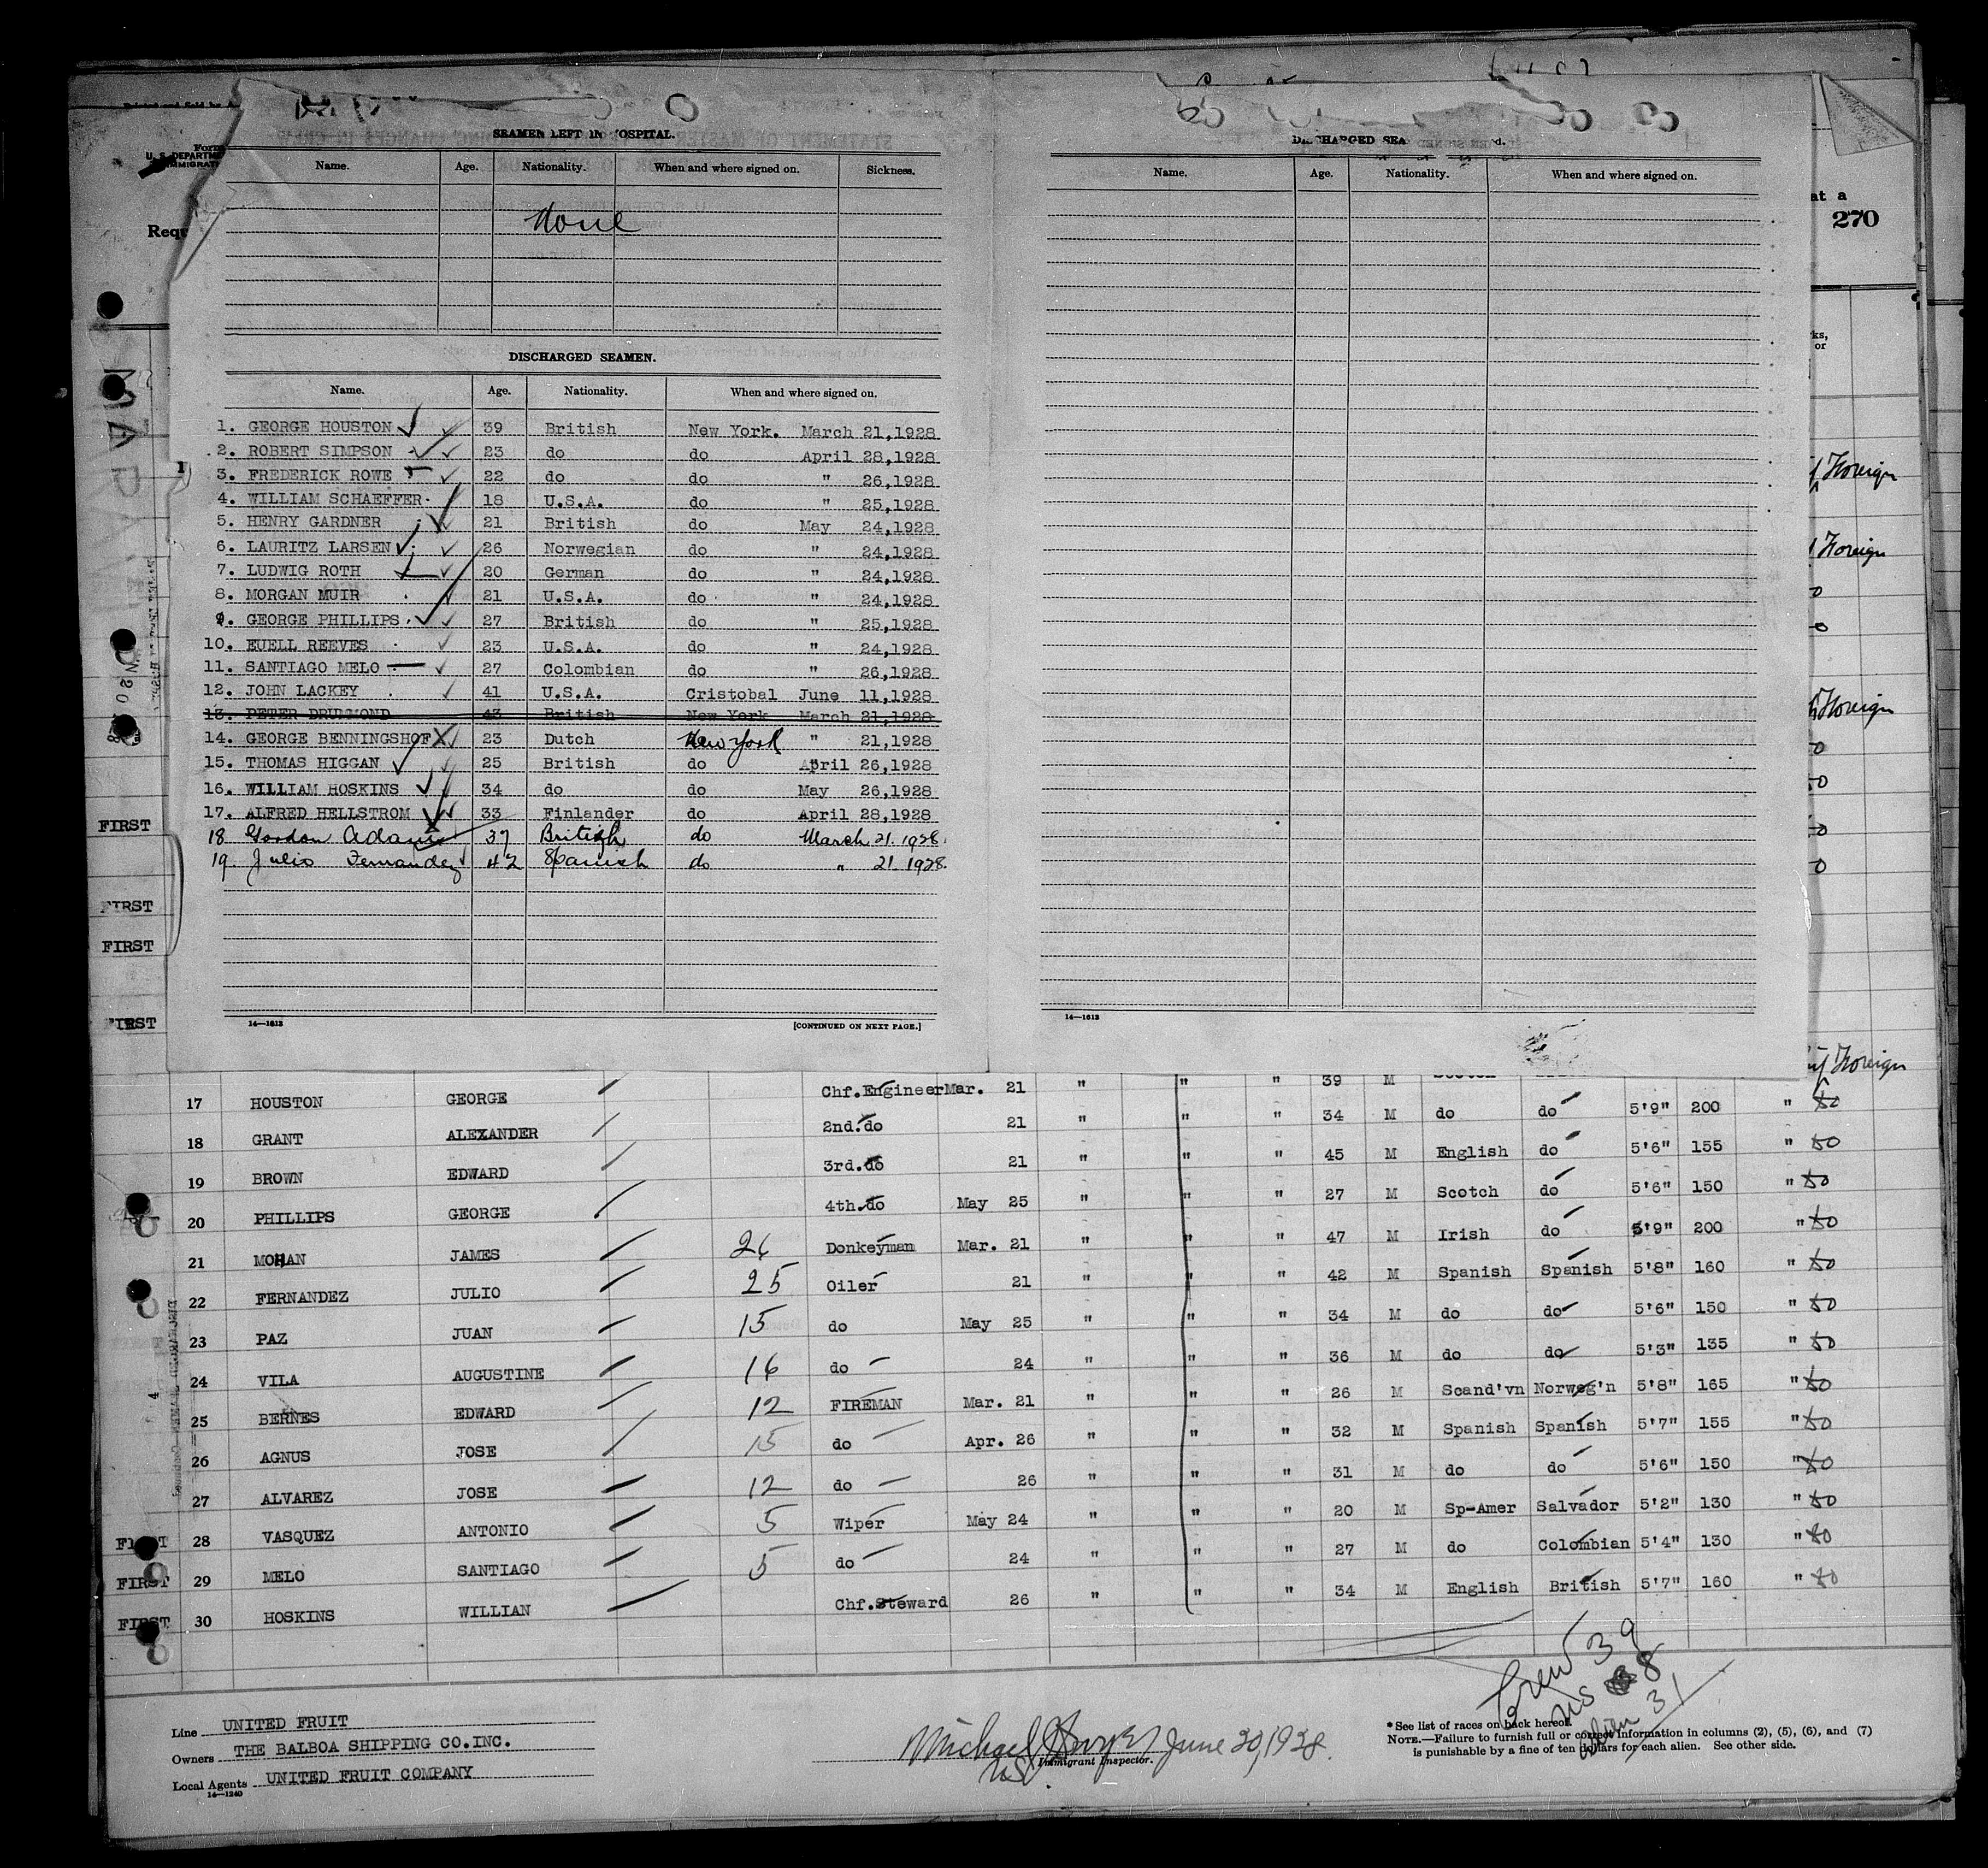 SEAMEN LEFT IN HOSPITAL.
Name. Age. Nationality. When and where signed on. Sickness.
None
DISCHARGED SEAMEN.
Name. Age. Nationality. When and where signed on.
1. GEORGE HOUSTON 39 British New York. March 21,1928
2. ROBERT SIMPSON 23 do do April 28,1928
3. FREDERICK ROWE 22 do do " 26,1928
4. WILLIAM SCHAEFFER 18 U.S.A. do " 25,1928
5. HENRY GARDNER 21 British do May 24,1928
6. LAURITZ LARSEN 26 Norwegian do " 24,1928
7. LUDWIG ROTH 20 German do " 24,1928
8. MORGAN MUIR 21 U.S.A. do " 24,1928
9. GEORGE PHILLIPS 27 British do " 25,1928
10. EUELL REEVES 23 U.S.A. do " 24,1928
11. SANTIAGO MELO 27 Colombian do " 26,1928
12. JOHN LACKEY 41 U.S.A. Cristobal June 11,1928
13. PETER DRUMMOND 43 British New York March 21,1928
14. GEORGE BENNINGSHOF 23 Dutch New York " 21,1928
15. THOMAS HIGGAN 25 British do April 26,1928
16. WILLIAM HOSKINS 34 do do May 26,1928
17. ALFRED HELLSTROM 33 Finlander do April 28,1928
18 Gordon Adams 37 British do March 21. 1928
19. Julio Fernandez 42 Spanish do " 21. 1928
14—1613 [CONTINUED ON NEXT PAGE.]
Name. Age. Nationality. When and where signed on.
14—1613
Form
U. S. DEPARTM
IMMIGRATI
Requ
at a
270
ks,
or
Foreign
Foreign
Foreign
Foreign
FIRST
FIRST
FIRST
FIRST
17 HOUSTON GEORGE Chf.Engineer Mar. 21 " " " 39 M
18 GRANT ALEXANDER 2nd.do 21 " " " 34 M do do 5'9" 200 " do
19 BROWN EDWARD 3rd.do 21 " " " 45 M English do 5'6" 155 " do
20 PHILLIPS GEORGE 4th.do May 25 " " " 27 M Scotch do 5'6" 150 " do
21 MOHAN JAMES 26 Donkeyman Mar. 21 " " " 47 M Irish do 5'9" 200 " do
22 FERNANDEZ JULIO 25 Oiler 21 " " " 42 M Spanish Spanish 5'8" 160 " do
23 PAZ JUAN 15 do May 25 " " " 34 M do do 5'6" 150 " do
24 VILA AUGUSTINE 16 do 24 " " " 36 M do do 5'3" 135 " do
25 BERNES EDWARD 12 FIREMAN Mar. 21 " " " 26 M Scand'vn Norweg'n 5'8" 165 " do
26 AGNUS JOSE 15 do Apr. 26 " " " 32 M Spanish Spanish 5'7" 155 " do
27 ALVAREZ JOSE 12 do 26 " " " 31 M do do 5'6" 150 " do
FIRST 28 VASQUEZ ANTONIO 5 Wiper May 24 " " " 20 M Sp-Amer Salvador 5'2" 130 " do
FIRST 29 MELO SANTIAGO 5 do 24 " " " 27 M do Colombian 5'4" 130 " do
FIRST 30 HOSKINS WILLIAN Chf.Steward 26 " " " 34 M English British 5'7" 160 " do
Crew 39
US 8
alien 31
Line UNITED FRUIT
Owners THE BALBOA SHIPPING CO.INC.
Local Agents UNITED FRUIT COMPANY
14—1240
Michael June 20,1928.
Immigrant Inspector.
*See list of races on back hereof.
NOTE.—Failure to furnish full or correct information in columns (2), (5), (6), and (7)
is punishable by a fine of ten dollars for each alien. See other side.